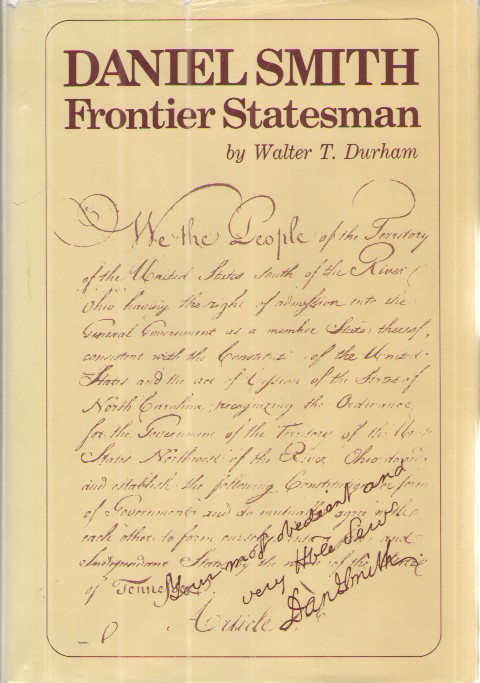 DANIEL SMITH
Frontier Statesman
by Walter T. Durham
We the People of the Territory
of the United States South of the River
Ohio having the right of admission into the
General Government as a member State thereof,
consistent with the Constituti of the United
States and the act of Cession of the State of
North Carolina, recognizing the Ordinance
for the Government of the Territory of the
States Northwest of the River Ohio do
and establish the following Constitution or form
of Government and do mutually agree with
each other to form
Independent State by the name of the State
of Tennessee.
Your most obedient and
very Hble Serv
Dan Smith
Article